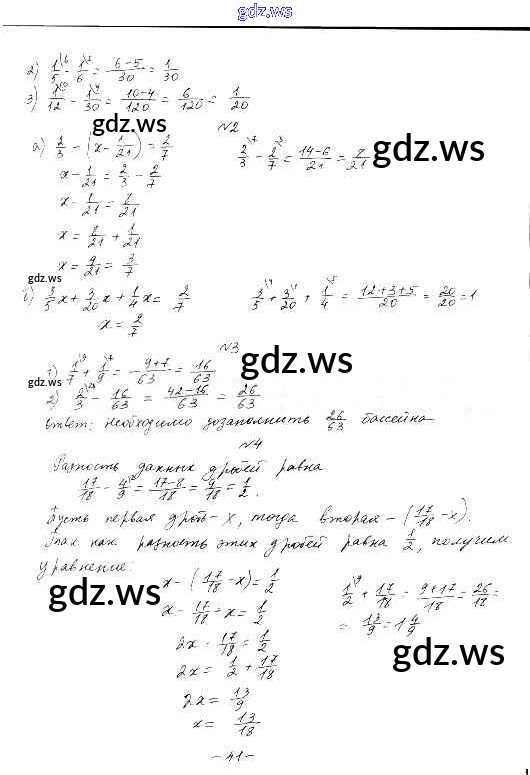 gdz.ws
2) 1/5\6 - 1/6\5 = (6-5)/30 = 1/30
3) 1/12\10 - 1/30\4 = (10-4)/120 = 6/120 = 1/20
gdz.ws
N2
а) 2/3 - (x - 1/21) = 2/7   2/3\7 - 2/7\3 = (14-6)/21 = 8/21
gdz.ws
x - 1/21 = 2/3 - 2/7
x - 1/21 = 8/21
x = 8/21 + 1/21
x = 9/21 = 3/7
gdz.ws
3/5 x + 3/20 x + 1/4 x = 2/7   3/5\4 + 3/20\1 + 1/4\5 = (12+3+5)/20 = 20/20 = 1
x = 2/7
N3
gdz.ws
1) 1/7\9 + 1/9\7 = (9+7)/63 = 16/63
gdz.ws
2) 2/3\21 - 16/63 = (42-16)/63 = 26/63
Ответ: необходимо дозаполнить 26/63 бассейна
N4
Разность данных дробей равна
17/18 - 4/9\2 = (17-8)/18 = 9/18 = 1/2.
Пусть первая дробь - x, тогда вторая - (17/18 - x).
Так как разность этих дробей равна 1/2, получим
уравнение:
gdz.ws
x - (17/18 - x) = 1/2   1/2\9 + 17/18 = (9+17)/18 = 26/18 =
x - 17/18 + x = 1/2   = 13/9 = 1 4/9
gdz.ws
2x - 17/18 = 1/2
2x = 1/2 + 17/18
2x = 13/9
x = 13/18
-41-